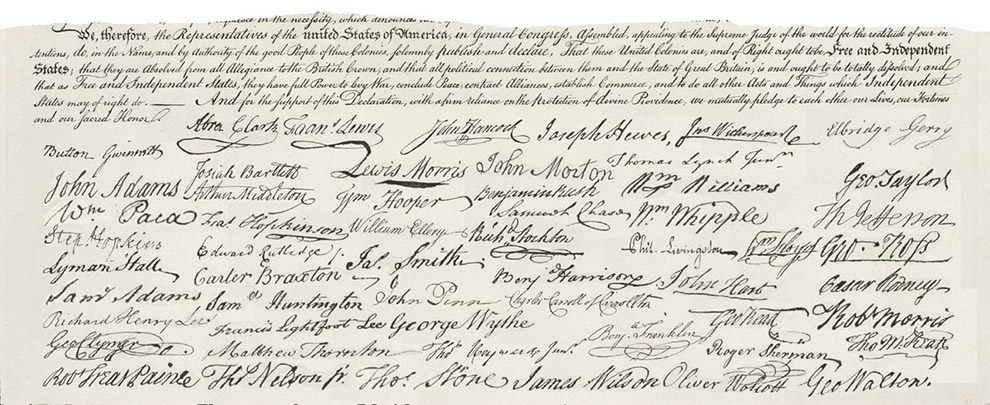 in the necessity, which denounces
We, therefore, the Representatives of the united States of America, in General Congress, Assembled, appealing to the Supreme Judge of the world for the rectitude of our in-
tentions, do, in the Name, and by authority of the good People of these Colonies, solemnly publish and declare, That these United Colonies are, and of Right ought to be, Free and Independent
States; that they are Absolved from all Allegiance to the British Crown, and that all political connection between them and the State of Great Britain, is and ought to be totally dissolved; and
that as Free and Independent States, they have full Power to levy War, conclude Peace, contract Alliances, establish Commerce, and to do all other Acts and Things which Independent
States may of right do. — And for the support of this Declaration, with a firm reliance on the Protection of divine Providence, we mutually pledge to each other our Lives, our Fortunes
and our Sacred Honor.
Abra Clark Frans. Lewis John Hancock Joseph Hewes, Jno Witherspoon Elbridge Gerry
Button Gwinnett Josiah Bartlett Lewis Morris John Morton Thomas Lynch Junr
John Adams Arthur Middleton Wm Hooper Benjamin Rush Wm Williams Geo Taylor
Wm Paca Fras. Hopkinson William Ellery Samuel Chase Wm Whipple Th Jefferson
Step. Hopkins Edward Rutledge Richd Stockton Phil. Livingston Geo. Ross
Lyman Hall Carter Braxton Jas. Smith Benj Harrison John Hart Caesar Rodney
Saml Adams Saml Huntington John Penn Charles Carroll of Carrollton
Richard Henry Lee Francis Lightfoot Lee George Wythe Benj. Franklin Geo Read Robt Morris
Geo Clymer Matthew Thornton Thos Heyward Junr. Roger Sherman Tho M:Kean
Robt Treat Paine Thos Nelson jr. Thos. Stone James Wilson Oliver Wolcott Geo Walton.